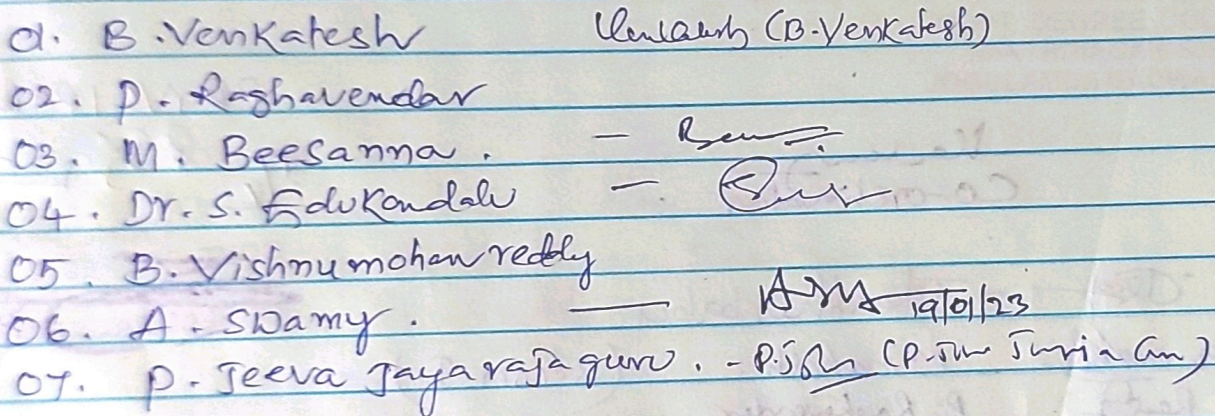 01. B. Venkatesh (B. Venkatesh)
02. P. Raghavendar
03. M. Beesanna. -
04. Dr. S. Edukondalu -
05. B. Vishnumohanreddy
06. A. Swamy. — 19/01/23
07. P. Jeeva Jayarajaguru. -